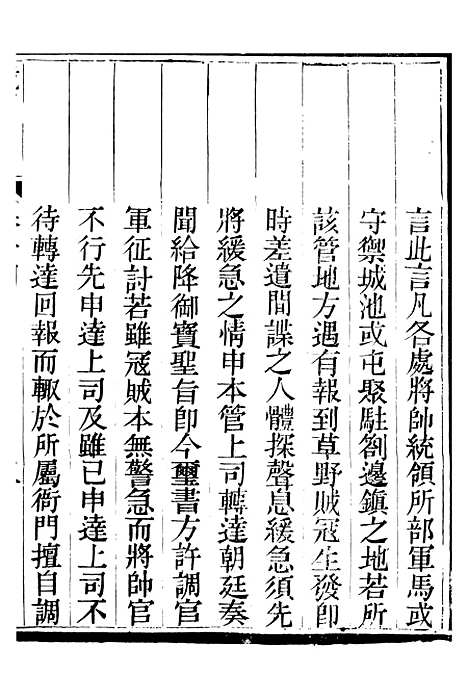 言此言凡各處將帥統領所部軍馬或
守禦城池或屯聚駐劄邊鎮之地若所
該管地方遇有報到草野賊冦生發卽
時差遣間諜之人體探聲息緩急須先
將緩急之情申本管上司轉達朝廷奏
聞給降御寶聖旨卽今璽書方許調官
軍征討若雖冦賊本無警急而將帥官
不行先申達上司及雖已申達上司不
待轉達回報而輙於所屬衙門擅自調